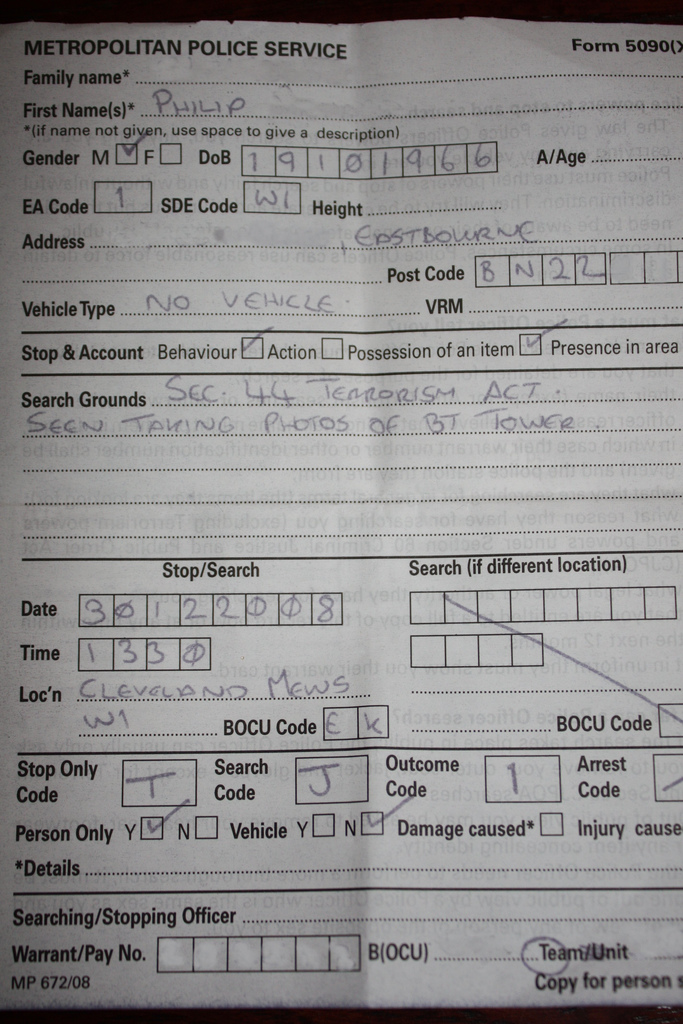 METROPOLITAN POLICE SERVICE Form 5090(X
Family name*
First Name(s)* PHILIP
*(if name not given, use space to give a description)
Gender M F DoB 19101966 A/Age
EA Code 1 SDE Code W1 Height
Address , EASTBOURNE
Post Code BN22
Vehicle Type NO VEHICLE. VRM
Stop & Account Behaviour Action Possession of an item Presence in area
Search Grounds SEC. 44 TERRORISM ACT.
SEEN TAKING PHOTOS OF BT TOWER
Stop/Search Search (if different location)
Date 30122008
Time 1330
Loc'n CLEVELAND MEWS
W1 BOCU Code EK BOCU Code
Stop Only Code T Search Code J Outcome Code 1 Arrest Code
Person Only Y N Vehicle Y N Damage caused* Injury cause
*Details
Searching/Stopping Officer
Warrant/Pay No. B(OCU) Team/Unit
MP 672/08 Copy for person s